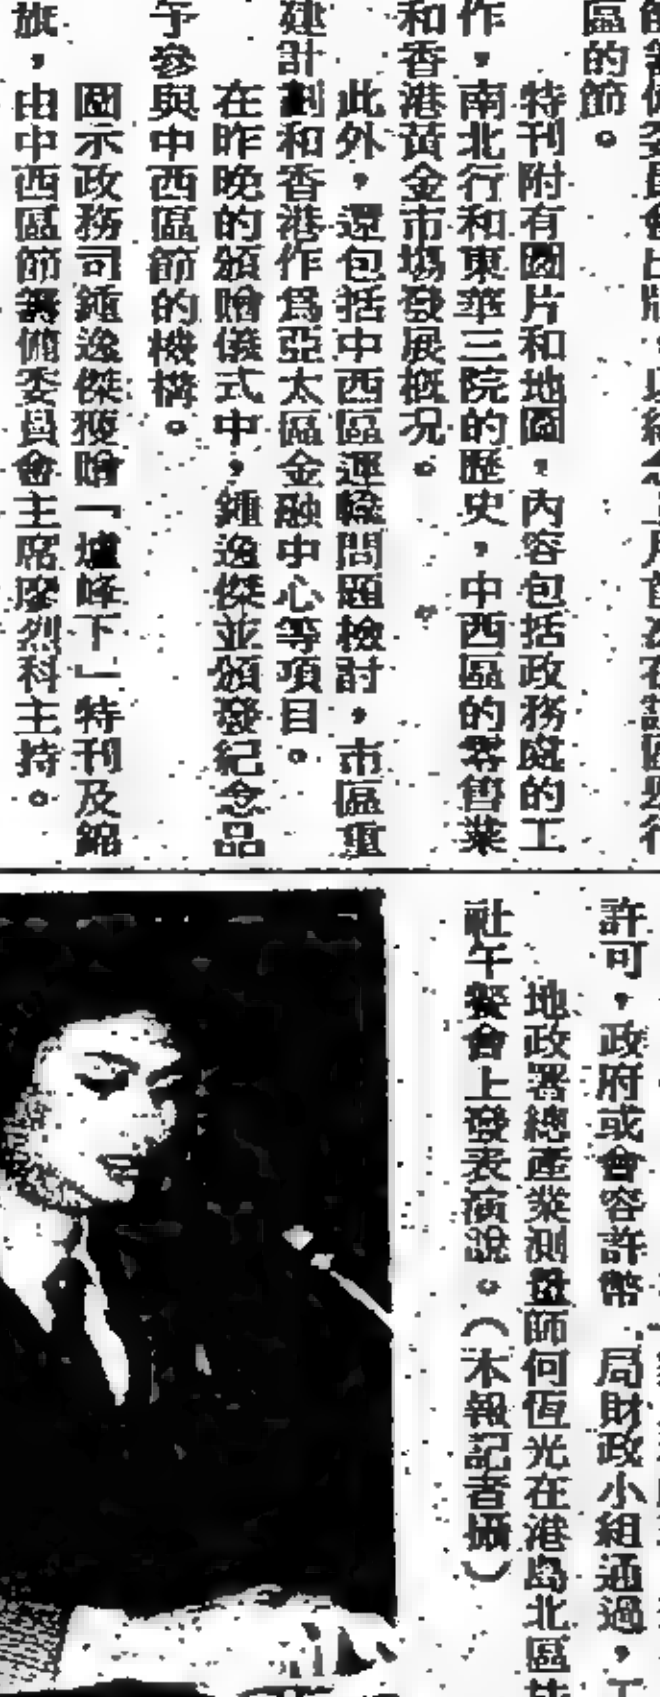 區的節。
特刊附有圖片和地圖，內容包括政務處的工
作，南北行和東華三院的歷史，中西區的零售業
和香港黃金市場發展概況。
此外，還包括中西區運輸問題檢討，市區重
建計劃和香港作爲亞太區金融中心等項目。
在昨晚的頒贈儀式中，鍾逸傑並頒發紀念品
予參與中西區節的機構。
圖示政務司鍾逸傑獲贈「爐峰下」特刊及錦
旗，由中西區節籌備委員會主席廖烈科主持。
許可，政府或會容許幣 局財政小組通過，工
地政署總產業測量師何恆光在港島北區扶
社午餐會上發表演說。（本報記者攝）